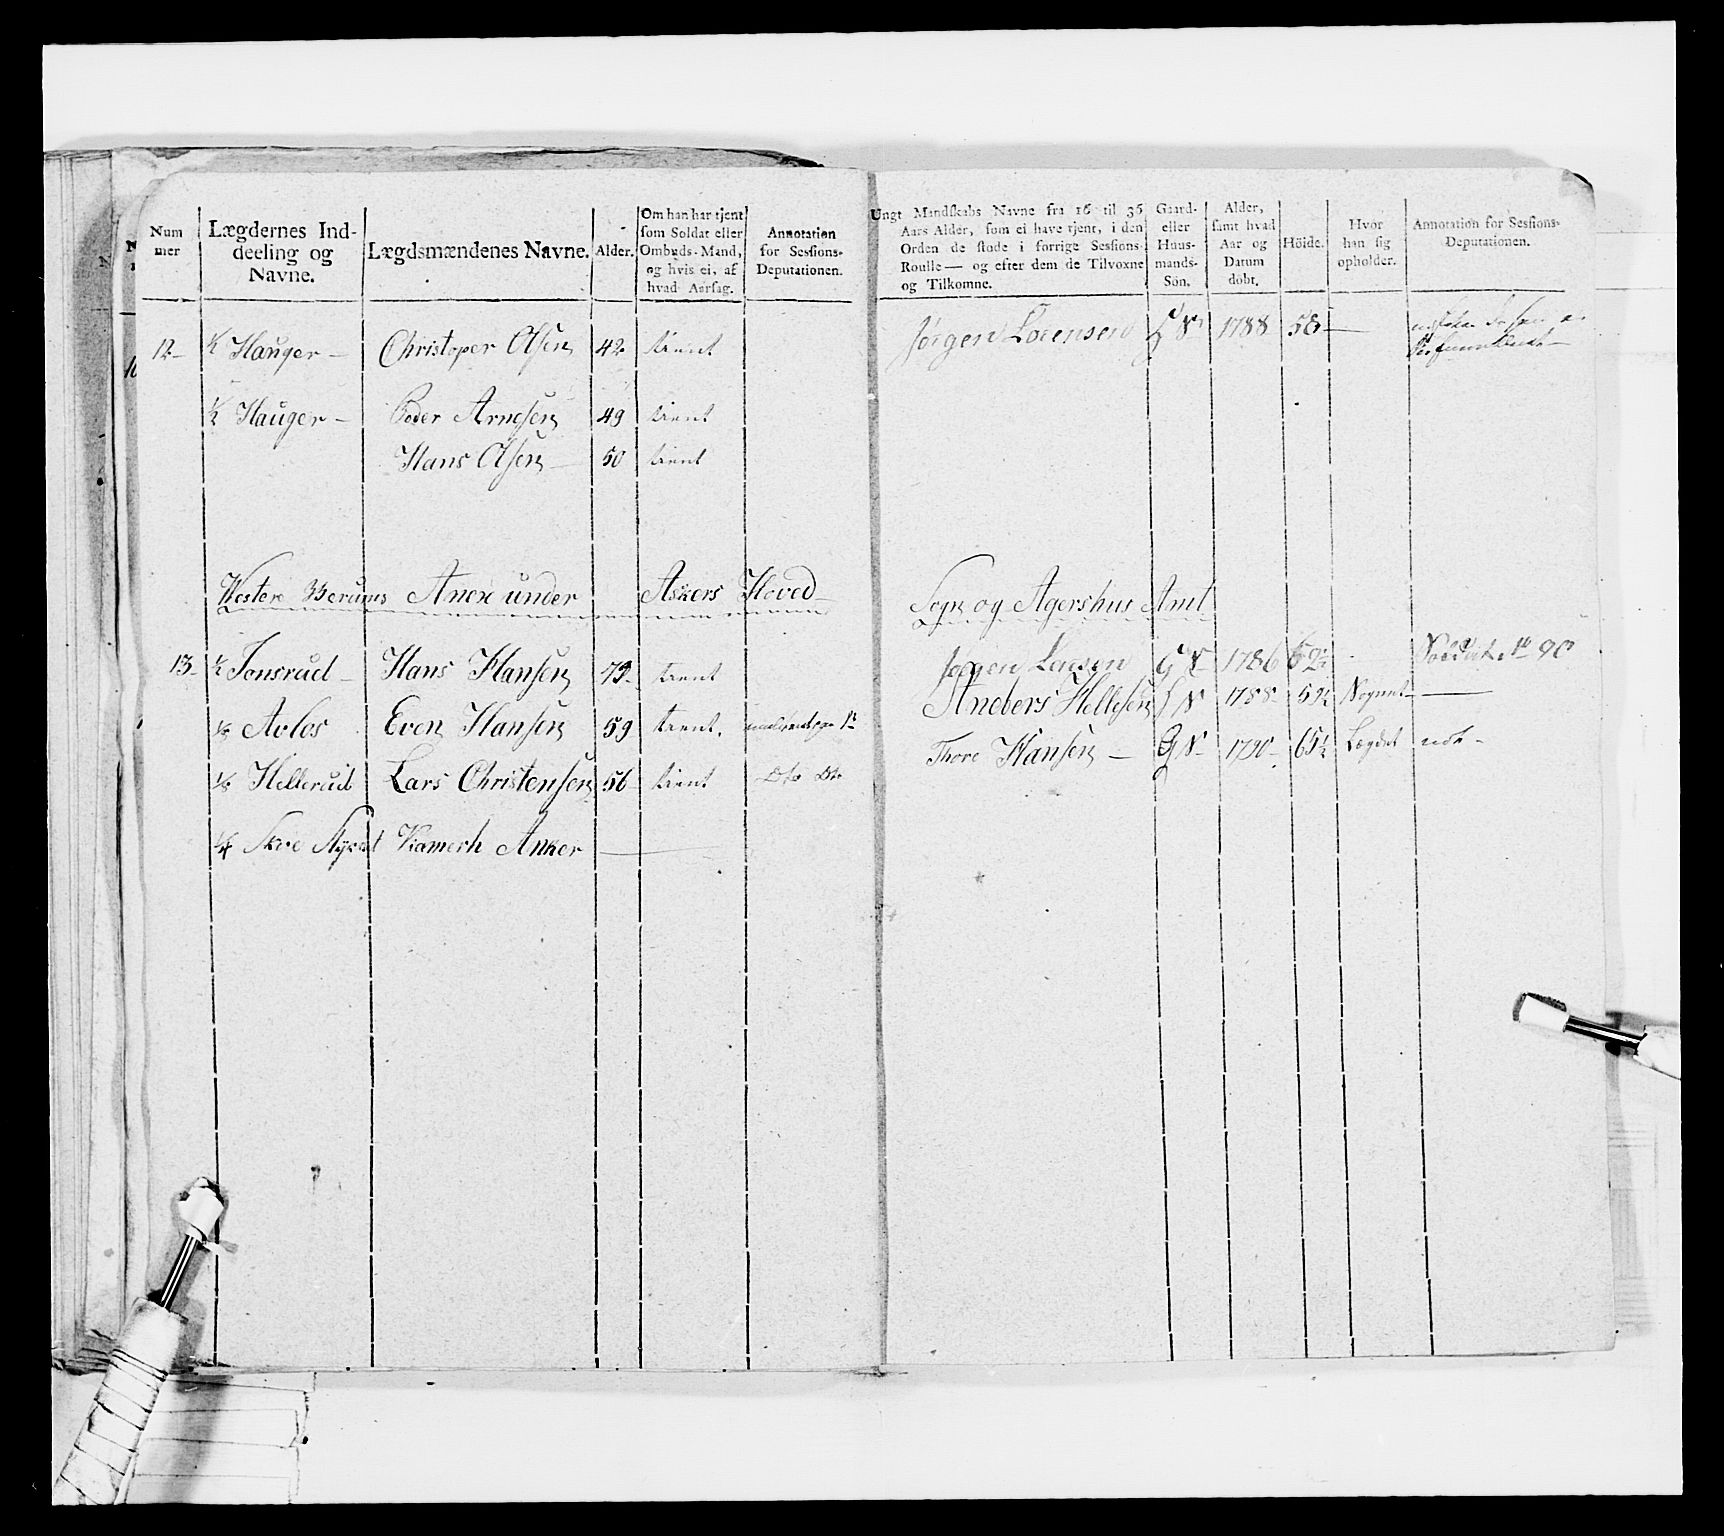 Num
mer
Lægdernes Ind-
deeling og
Navne.
Lægdsmændenes Navne.
Alder.
Om han har tjent
som Soldat eller
Ombuds-Mand,
og hvis ei, af
hvad Aarsag.
Annotation
for Sessions-
Deputationen.
12 ½ Hauger Christoper Olsen 42 tient
½ Hauger Peder Arnesen 49 tient
Hans Olsen 50 tient
Westere Berums Anex under Askers Hoved
13 ½ Jonsrud Hans Hansen 72 tient
⅛ Avlos Even Hansen 59 tient
⅛ Hellerud Lars Christensen 56 tient Dto Dto
¼ Anker
Ungt Mandskabs Navne fra 16 til 36
Aars Alder, som ei have tjent, i den
Orden de stode i forrige Sessions-
Roulle — og efter dem de Tilvoxne
og Tilkomne.
Gaard-
eller
Huus-
mands-
Sön.
Alder,
samt hvad
Aar og
Datum
döbt.
Höide.
Hvor
han sig
opholder.
Annotation for Sessions-
Deputationen.
Jørgen Lorensen 1788 58
Sogn og Agershus Amt
Jørgen Larsen G S 1786 Soldat
Anders Hellesen S 1788 Sognet
Thore Hansen G S 1790 65½ Lægdet